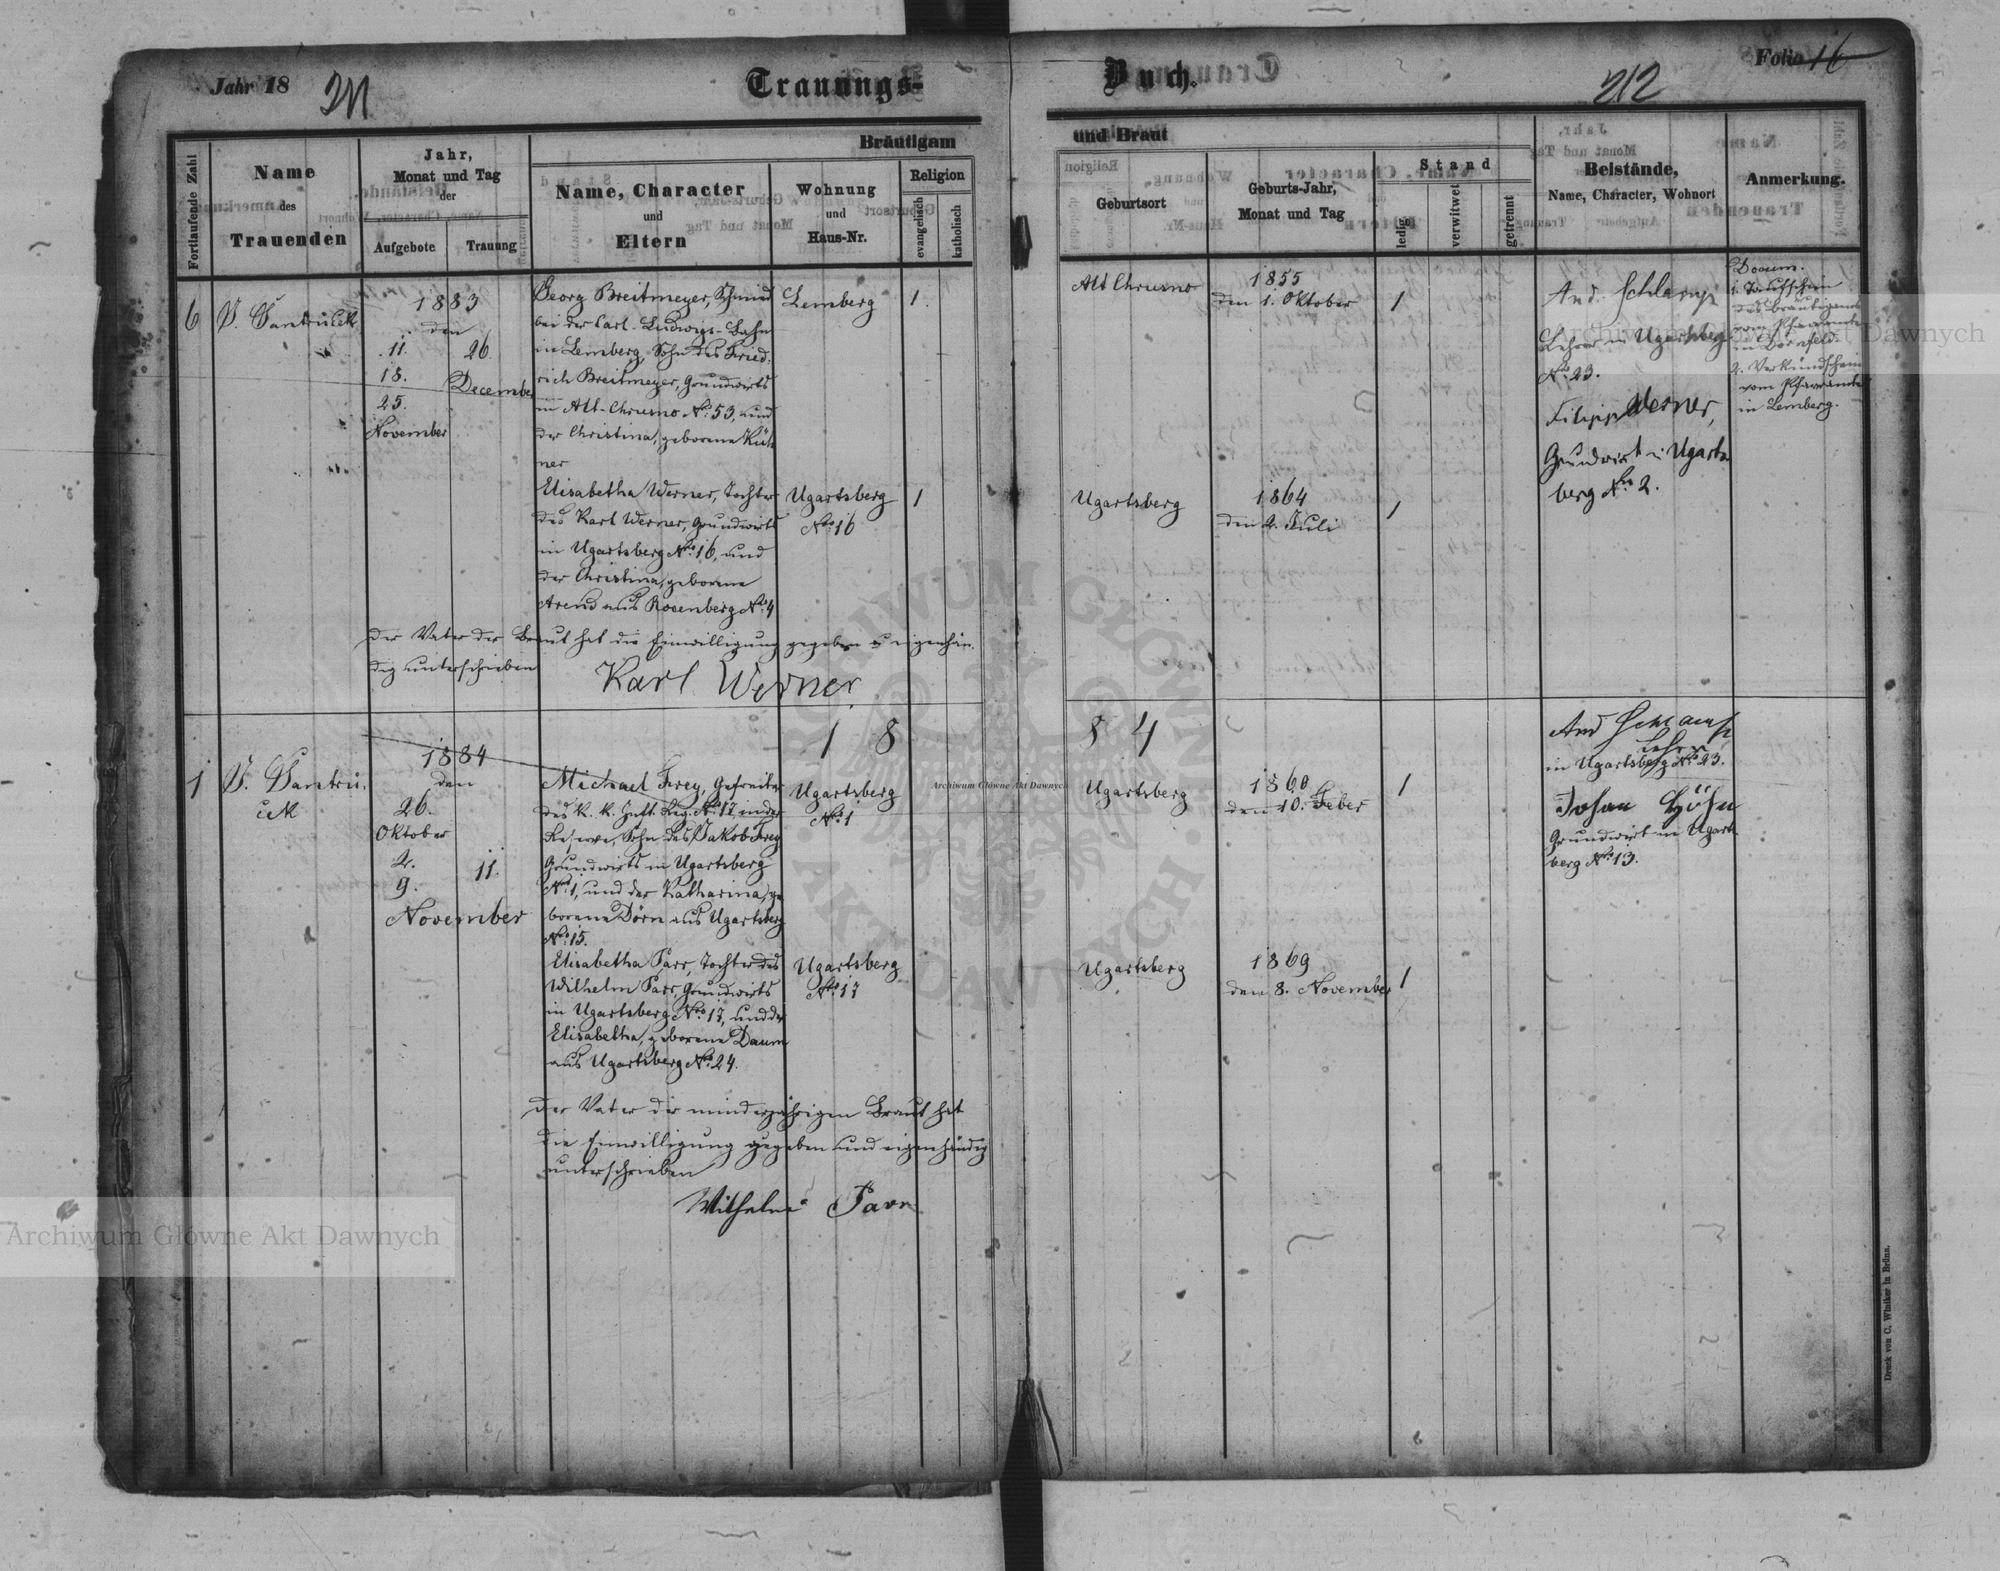 Jahr 18
211
Trauungs-
Buch.
212
Folio 16
Fortlaufende Zahl
Name
des
Trauenden
Jahr,
Monat und Tag
der
Aufgebote
Trauung
Bräutigam
Name, Character
und
Eltern
Wohnung
und
Haus-Nr.
Religion
evangelisch
katholisch
und Braut
Geburtsort
Geburts-Jahr,
Monat und Tag
Stand
ledig
verwitwet
getrennt
Beistände,
Name, Character, Wohnort
Anmerkung.
6
1883
den
11. 26.
18. December
25.
November
Georg Breitmeyer, Schmied
bei der Carl-Ludwigs-Bahn
in Lemberg, Sohn des Fried-
rich Breitmeyer, Grundwirts
in Alt-Chrusno No. 53, und
der Christina, geborene Küh
ner
Lemberg
1.
Alt Chrusno
1855
den 1. Oktober
1
And. Schlamp
Lehrer in Ugartsberg
No. 23.
Filipp Werner,
Grundwirt in Ugarts-
berg No. 2.
Docum.
1. Taufschein
des Bräutigams
vom Pfarramte
in Dornfeld.
2. Verkündschein
vom Pfarramte
in Lemberg.
Elisabetha Werner, Tochter
des Karl Werner, Grundwirts
in Ugartsberg No. 16, und
der Christina, geborene
Arend aus Rosenberg No. 4
Ugartsberg
No. 16
1
Ugartsberg
1864
den 2. Juli
1
Der Vater der Braut hat die Einwilligung gegeben u eigenhän-
dig unterschrieben
Karl Werner
1 8 8 4
1
1884
den
26.
Oktober
2.
9. 11.
November
Michael Frey, Gefreiter
des K. K. Inft. Reg. No. 17 in der
Reserve, Sohn des Jakob Frey
Grundwirts in Ugartsberg
No. 1, und der Katharina, ge
borene Dörn aus Ugartsberg
No. 15.
Ugartsberg
No. 1
Ugartsberg
1860
den 10. Feber
1
And Schlamp
Lehrer
in Ugartsberg No. 23.
Johan Höhn
Grundwirt in Ugarts-
berg No. 13.
Elisabetha Parr, Tochter des
Wilhelm Parr, Grundwirts
in Ugartsberg No. 17, und der
Elisabetha, geborene Daum
aus Ugartsberg No. 24.
Ugartsberg
No. 17
Ugartsberg
1869
den 8. November
1
Der Vater der minderjährigen Braut hat
die Einwilligung gegeben und eigenhändig
unterschrieben
Wilhelm Parr
Druck von C. Winiker in Brünn.
Archiwum Główne Akt Dawnych
Archiwum Główne Akt Dawnych
Archiwum Główne Akt Dawnych
ARCHIWUM GŁÓWNE AKT DAWNYCH